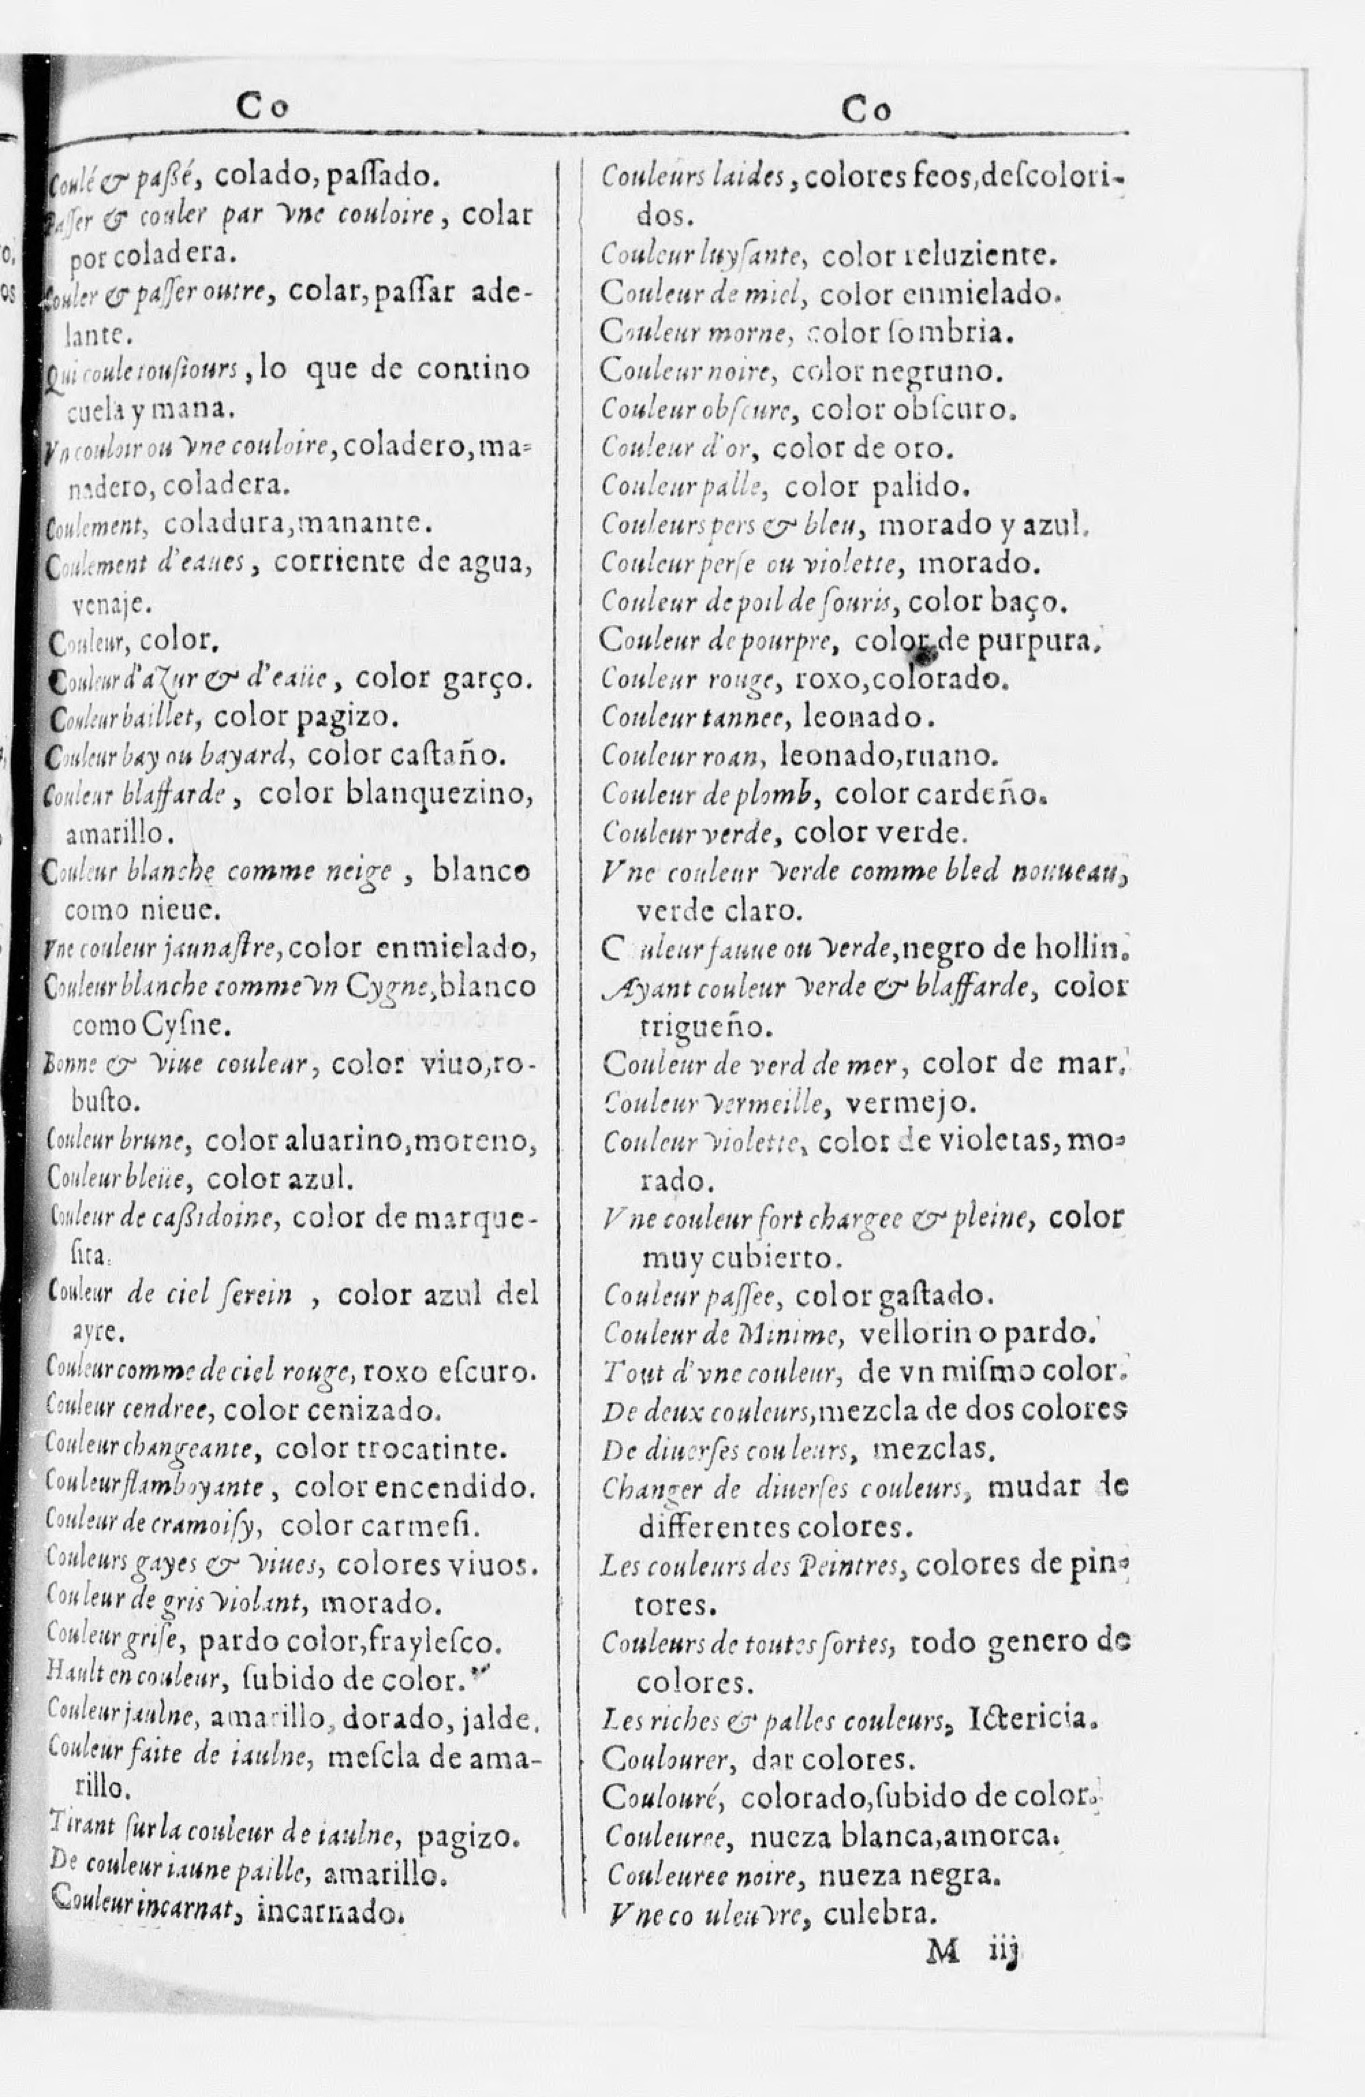 Co
Coulé & paßé, colado, paſſado.
Paſſer & couler par vne couloire, colar
por coladera.
Couler & paſſer outre, colar, paſſar ade-
lante.
Qui coule touſiours, lo que de contino
cuela y mana.
Vn couloir ou vne couloire, coladero, ma-
nadero, coladera.
Coulement, coladura, manante.
Coulement d'eaues, corriente de agua,
venaje.
Couleur, color.
Couleur d'azur & d'eaüe, color garço.
Couleur baillet, color pagizo.
Couleur bay ou bayard, color caſtaño.
Couleur blaffarde, color blanquezino,
amarillo.
Couleur blanche comme neige, blanco
como nieue.
Vne couleur jaunaſtre, color enmielado,
Couleur blanche comme vn Cygne, blanco
como Cyſne.
Bonne & viue couleur, color viuo, ro-
buſto.
Couleur brune, color aluarino, moreno,
Couleur bleüe, color azul.
Couleur de caßidoine, color de marque-
ſita.
Couleur de ciel ſerein, color azul del
ayre.
Couleur comme de ciel rouge, roxo eſcuro.
Couleur cendree, color cenizado.
Couleur changeante, color trocatinte.
Couleur flamboyante, color encendido.
Couleur de cramoiſy, color carmeſi.
Couleurs gayes & viues, colores viuos.
Couleur de gris violant, morado.
Couleur griſe, pardo color, frayleſco.
Hault en couleur, ſubido de color.
Couleur jaulne, amarillo, dorado, jalde.
Couleur faite de iaulne, meſcla de ama-
rillo.
Tirant ſur la couleur de iaulne, pagizo.
De couleur iaune paille, amarillo.
Couleur incarnat, incarnado.
Co
Couleurs laides, colores feos, deſcolori-
dos.
Couleur luyſante, color reluziente.
Couleur de miel, color enmielado.
Couleur morne, color ſombria.
Couleur noire, color negruno.
Couleur obſcure, color obſcuro.
Couleur d'or, color de oro.
Couleur palle, color palido.
Couleurs pers & bleu, morado y azul.
Couleur perſe ou violette, morado.
Couleur de poil de ſouris, color baço.
Couleur de pourpre, color de purpura.
Couleur rouge, roxo, colorado.
Couleur tannee, leonado.
Couleur roan, leonado, ruano.
Couleur de plomb, color cardeño.
Couleur verde, color verde.
Vne couleur verde comme bled nouueau,
verde claro.
C uleur fauue ou verde, negro de hollin.
Ayant couleur verde & blaffarde, color
trigueño.
Couleur de verd de mer, color de mar.
Couleur vermeille, vermejo.
Couleur violette, color de violetas, mo-
rado.
Vne couleur fort chargee & pleine, color
muy cubierto.
Couleur paſſee, color gaſtado.
Couleur de Minime, vellorin o pardo.
Tout d'vne couleur, de vn miſmo color.
De deux couleurs, mezcla de dos colores
De diuerſes couleurs, mezclas.
Changer de diuerſes couleurs, mudar de
differentes colores.
Les couleurs des Peintres, colores de pin-
tores.
Couleurs de toutes ſortes, todo genero de
colores.
Les riches & palles couleurs, Ictericia.
Coulourer, dar colores.
Coulouré, colorado, ſubido de color.
Couleuree, nueza blanca, amorca.
Couleuree noire, nueza negra.
Vne co uleuvre, culebra.
M iij